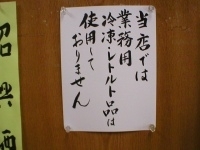 当店では
業務用
冷凍・レトルト品は
使用して
おりません
紹興酒